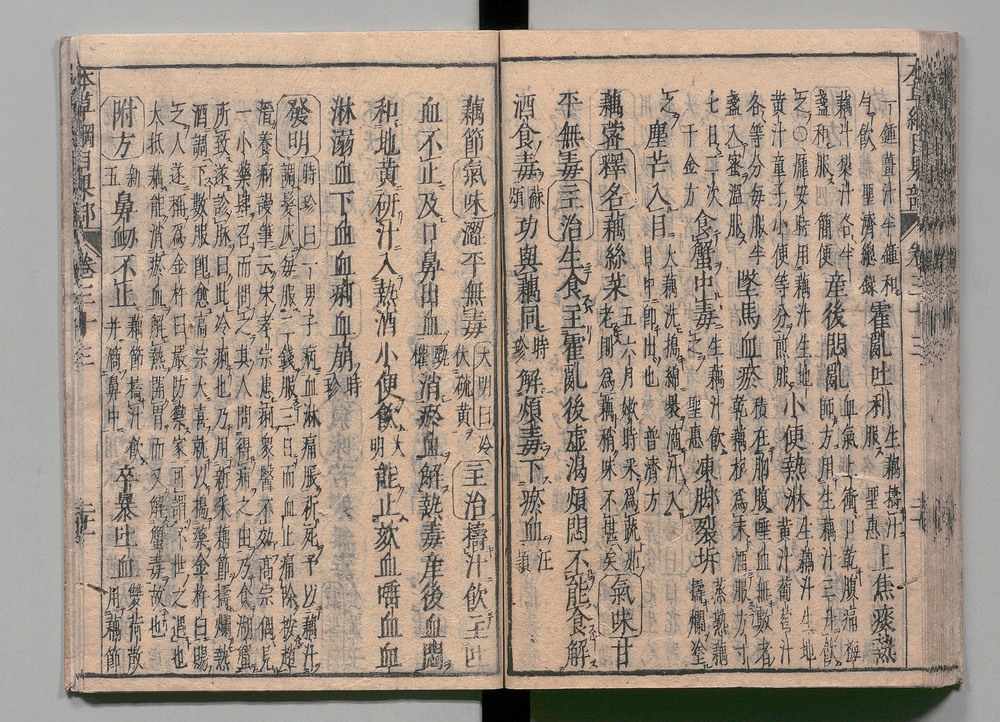 一鍾薑汁半鍾和
勻飲 聖濟總錄 霍亂吐利 生藕擣汁服 聖惠 上焦痰熱
藕汁梨汁各半盞和服 簡便 産後悶亂 血氣上衝口乾腹痛梅師方用生藕汁三升飲
之○龐安時用藕汁生地黃汁童子小便等分煎服 小便熱淋 生藕汁生地黃汁葡萄汁
各等分每服半盞入蜜溫服 墜馬血瘀 積在胸腹唾血無數者乾藕根爲末酒服方寸
七日二次千金方 食蟹中毒 生藕汁飲之 聖惠 凍脚裂坼 蒸熟藕擣爛塗
之 塵芒入目 大藕洗搗綿裹滴汁入目中即出也 普濟方
藕蔤 釋名 藕絲菜 五六月嫩時采爲蔬茹老則爲藕稍味不堪矣 氣味 甘
平無毒 主治 生食主霍亂後虛渴煩悶不能食解
酒食毒 蘇頌 功與藕同 時珍 解煩毒下瘀血 汪穎
藕節 氣味 澀平無毒 大明曰冷伏硫黃 主治 擣汁飲主吐
血不止及口鼻出血 甄權 消瘀血解熱毒産後血悶
和地黃研汁入熱酒小便飲 大明 能止欬血唾血血
淋溺血下血血痢血崩 時珍
發明 時珍曰一男子病血淋痛脹祈死予以藕汁調髮灰每服二錢服三日而血止痛除按趙
溍養疴漫筆云宋孝宗患痢衆醫不效高宗偶見一小藥肆召而問之其人問得病之由乃食湖蟹
所致遂診脉曰此冷痢也乃用新采藕節擣爛熱酒調下數服卽愈高宗大喜就以搗藥金杵臼賜
之人遂稱爲金杵臼嚴防禦家可謂不世之遇也大抵藕能消瘀血解熱開胃而又解蟹毒故也
附方 新五 鼻衄不止 藕節擣汁飲并滴鼻中 卒暴吐血 雙荷散用藕節